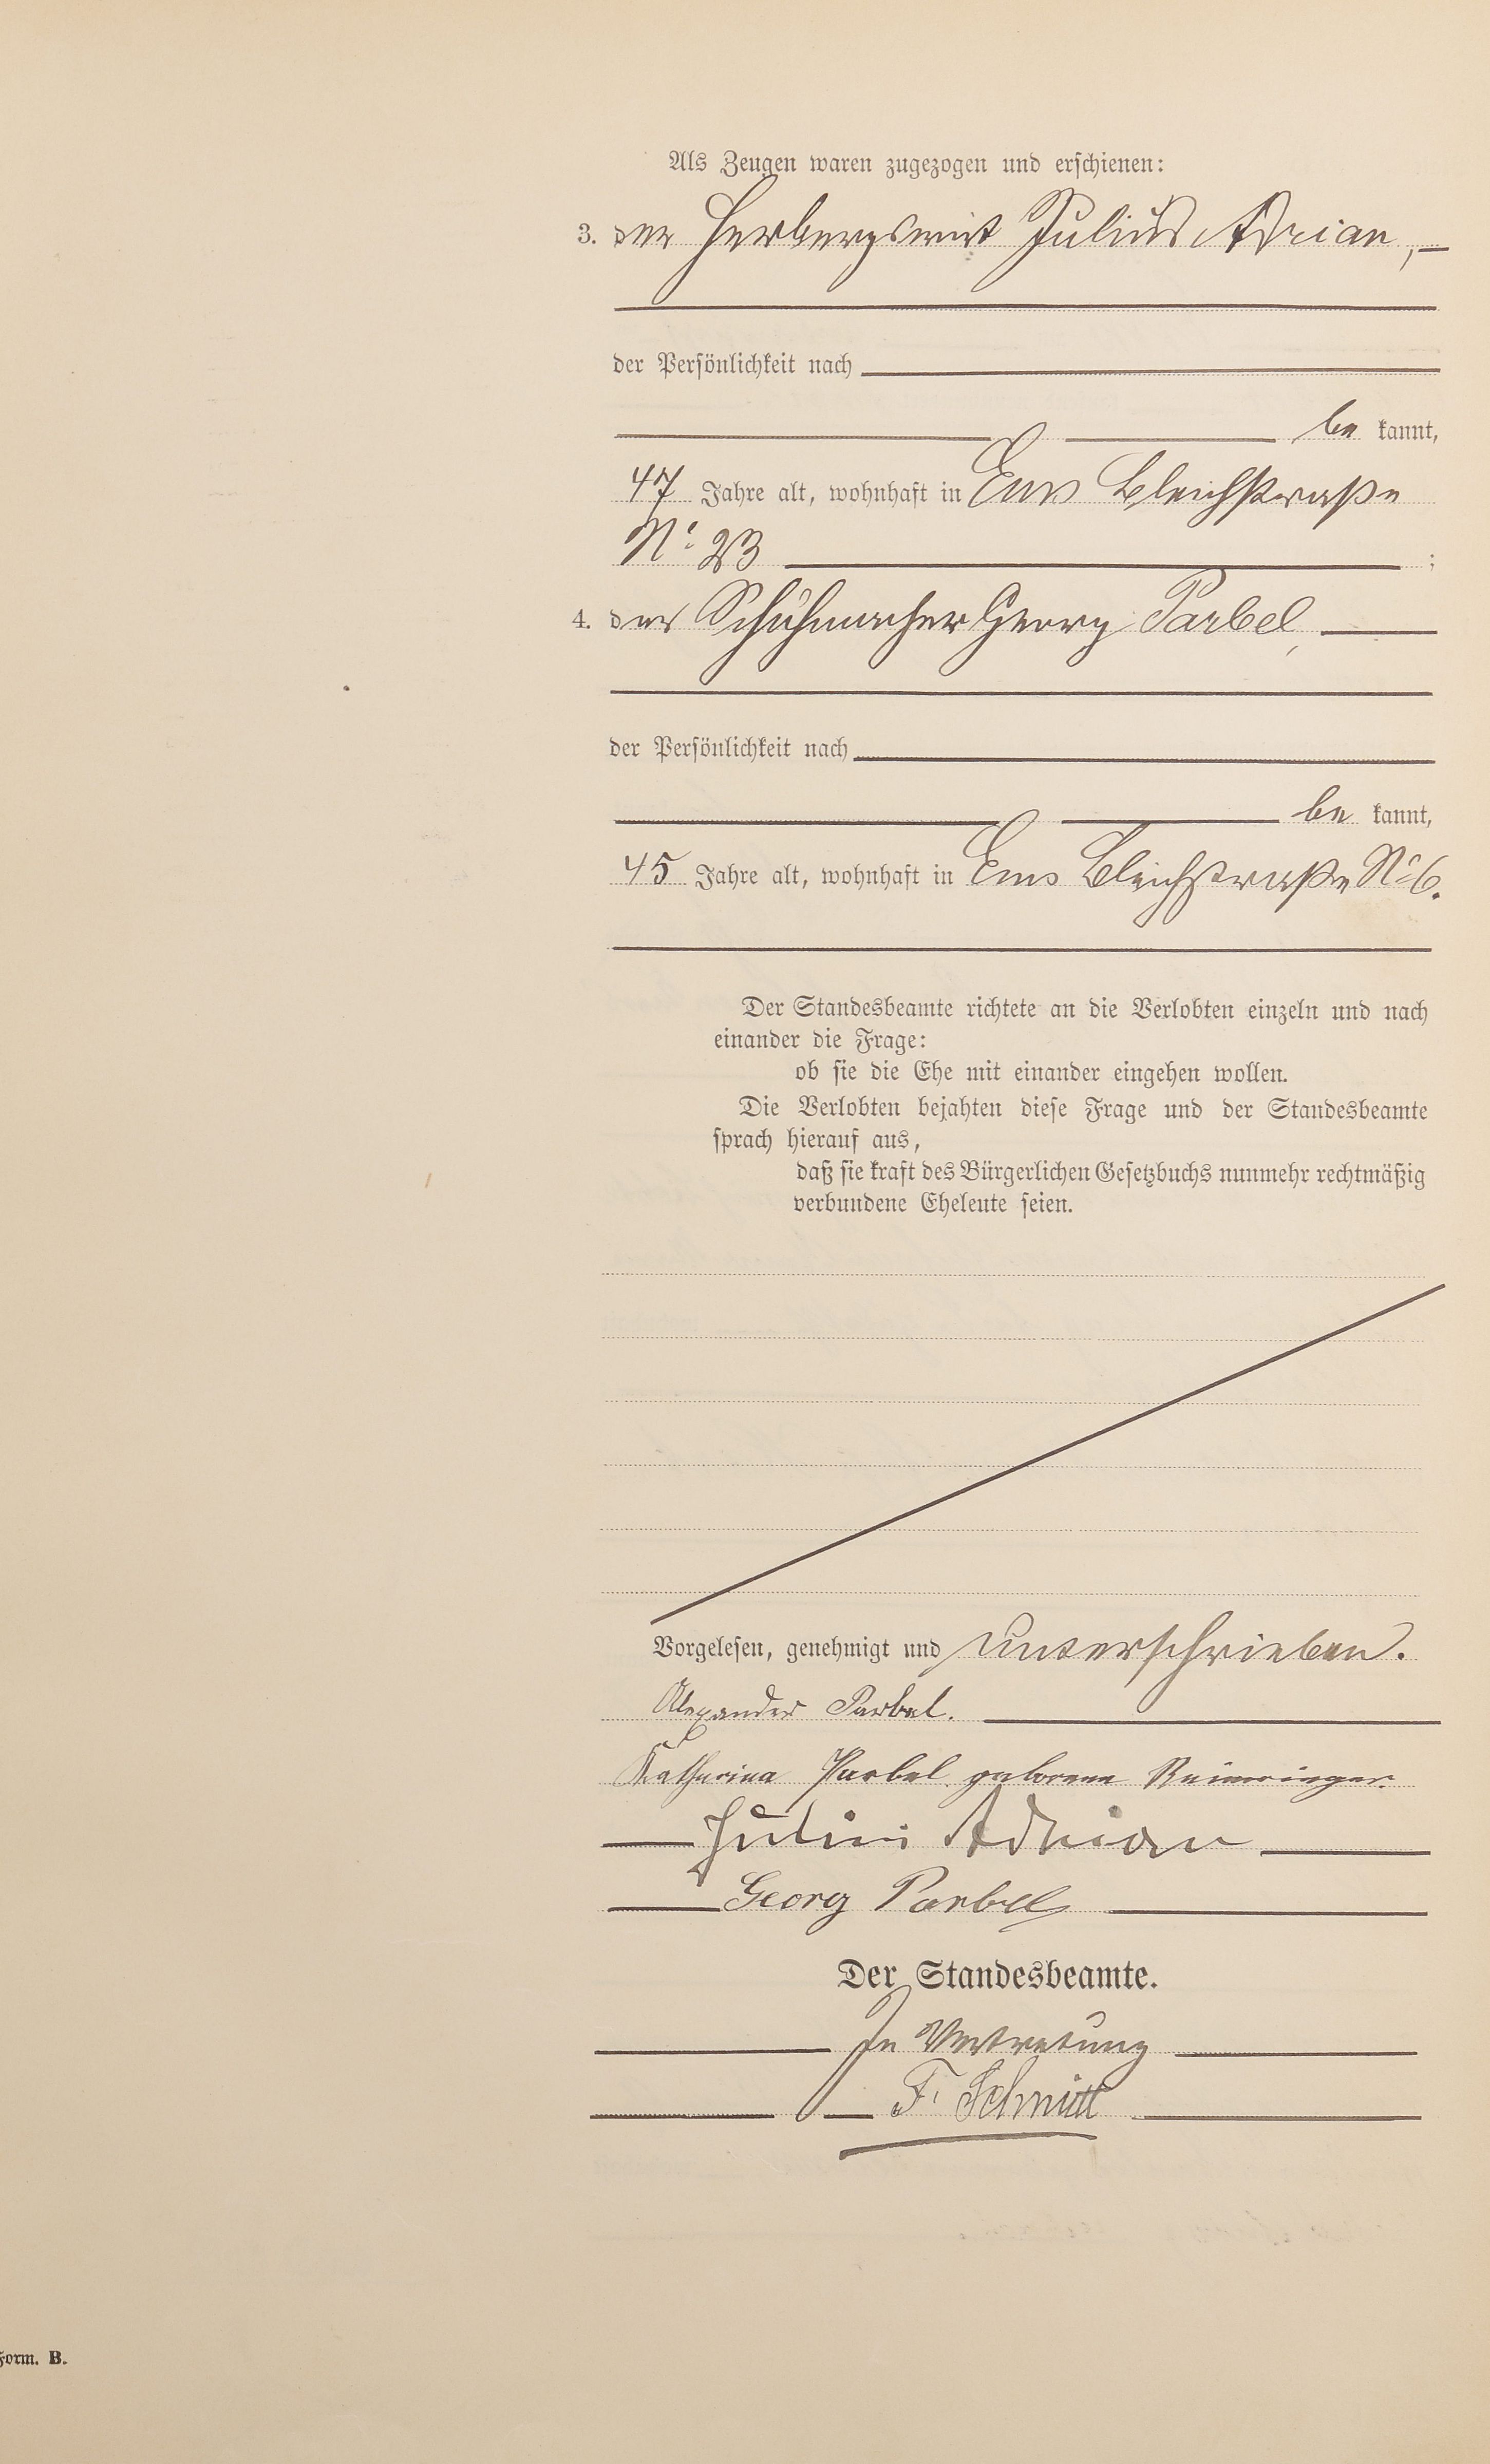 Als Zeugen waren zugezogen und erschienen:
3. der Herbergswirt Julius Adrian, —
der Persönlichkeit nach
be kannt,
47 Jahre alt, wohnhaft in Ems Bleichstraße
No 23 ;
4. der Schuhmacher Georg Parbel,
der Persönlichkeit nach
be kannt,
45 Jahre alt, wohnhaft in Ems Bleichstraße No 6.
Der Standesbeamte richtete an die Verlobten einzeln und nach
einander die Frage:
ob sie die Ehe mit einander eingehen wollen.
Die Verlobten bejahten diese Frage und der Standesbeamte
sprach hierauf aus,
daß sie kraft des Bürgerlichen Gesetzbuchs nunmehr rechtmäßig
verbundene Eheleute seien.
Vorgelesen, genehmigt und unterschrieben.
Alexander Parbel.
Katharina Parbel geborene
Julius Adrian
Georg Parbel
Der Standesbeamte.
In Vertretung
F. Schmitt
Form. B.